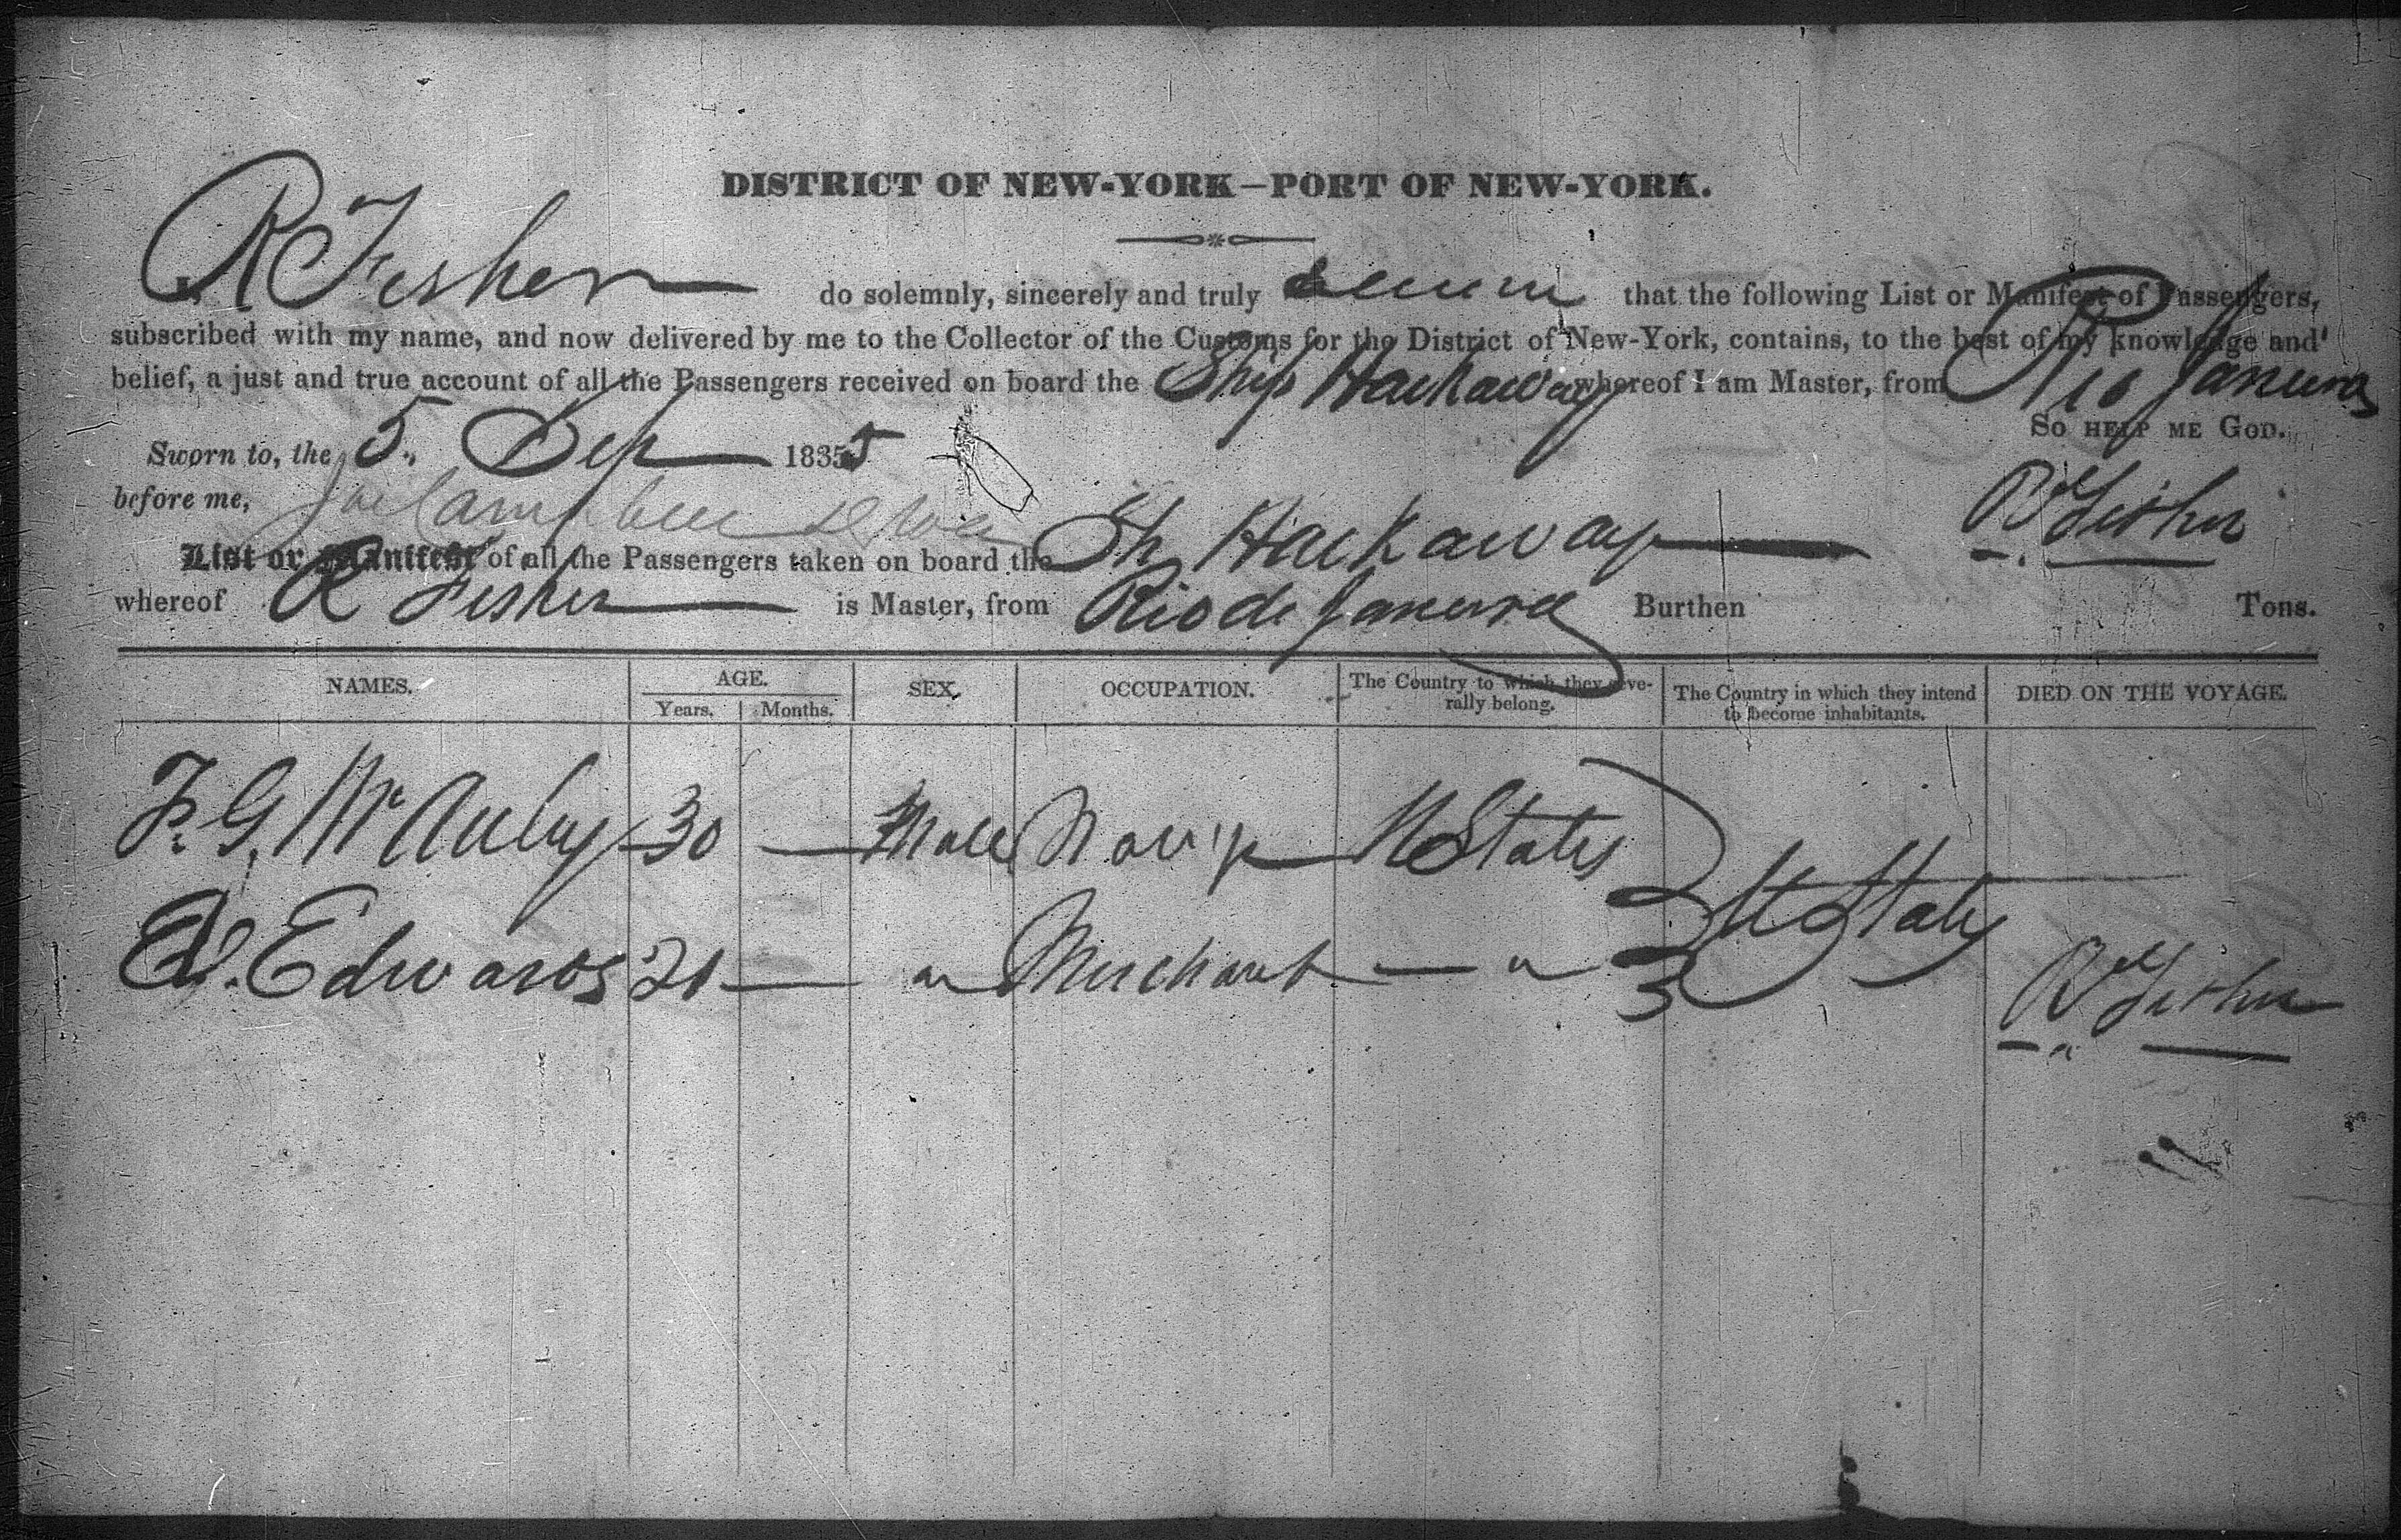 DISTRICT OF NEW-YORK—PORT OF NEW-YORK.
R Fisher do solemnly, sincerely and truly that the following List or Manifest of Passengers,
subscribed with my name, and now delivered by me to the Collector of the Customs for the District of New-York, contains, to the best of my knowledge and
belief, a just and true account of all the Passengers received on board the Ship Hackaway whereof I am Master, from Rio Janeiro
SO HELP ME GOD.
Sworn to, the 5 Sep 1835
before me,
R Fisher
List or Manifest of all the Passengers taken on board the Sh Hackaway
whereof R Fisher is Master, from Rio de Janeiro Burthen Tons.
NAMES. AGE. SEX. OCCUPATION. The Country to which they seve- The Country in which they intend DIED ON THE VOYAGE.
Years. Months. rally belong. to become inhabitants.
F. G. Mc 30 — Male U States
U States
Ed. Edwards 21 — " Merchant — "
R Fisher